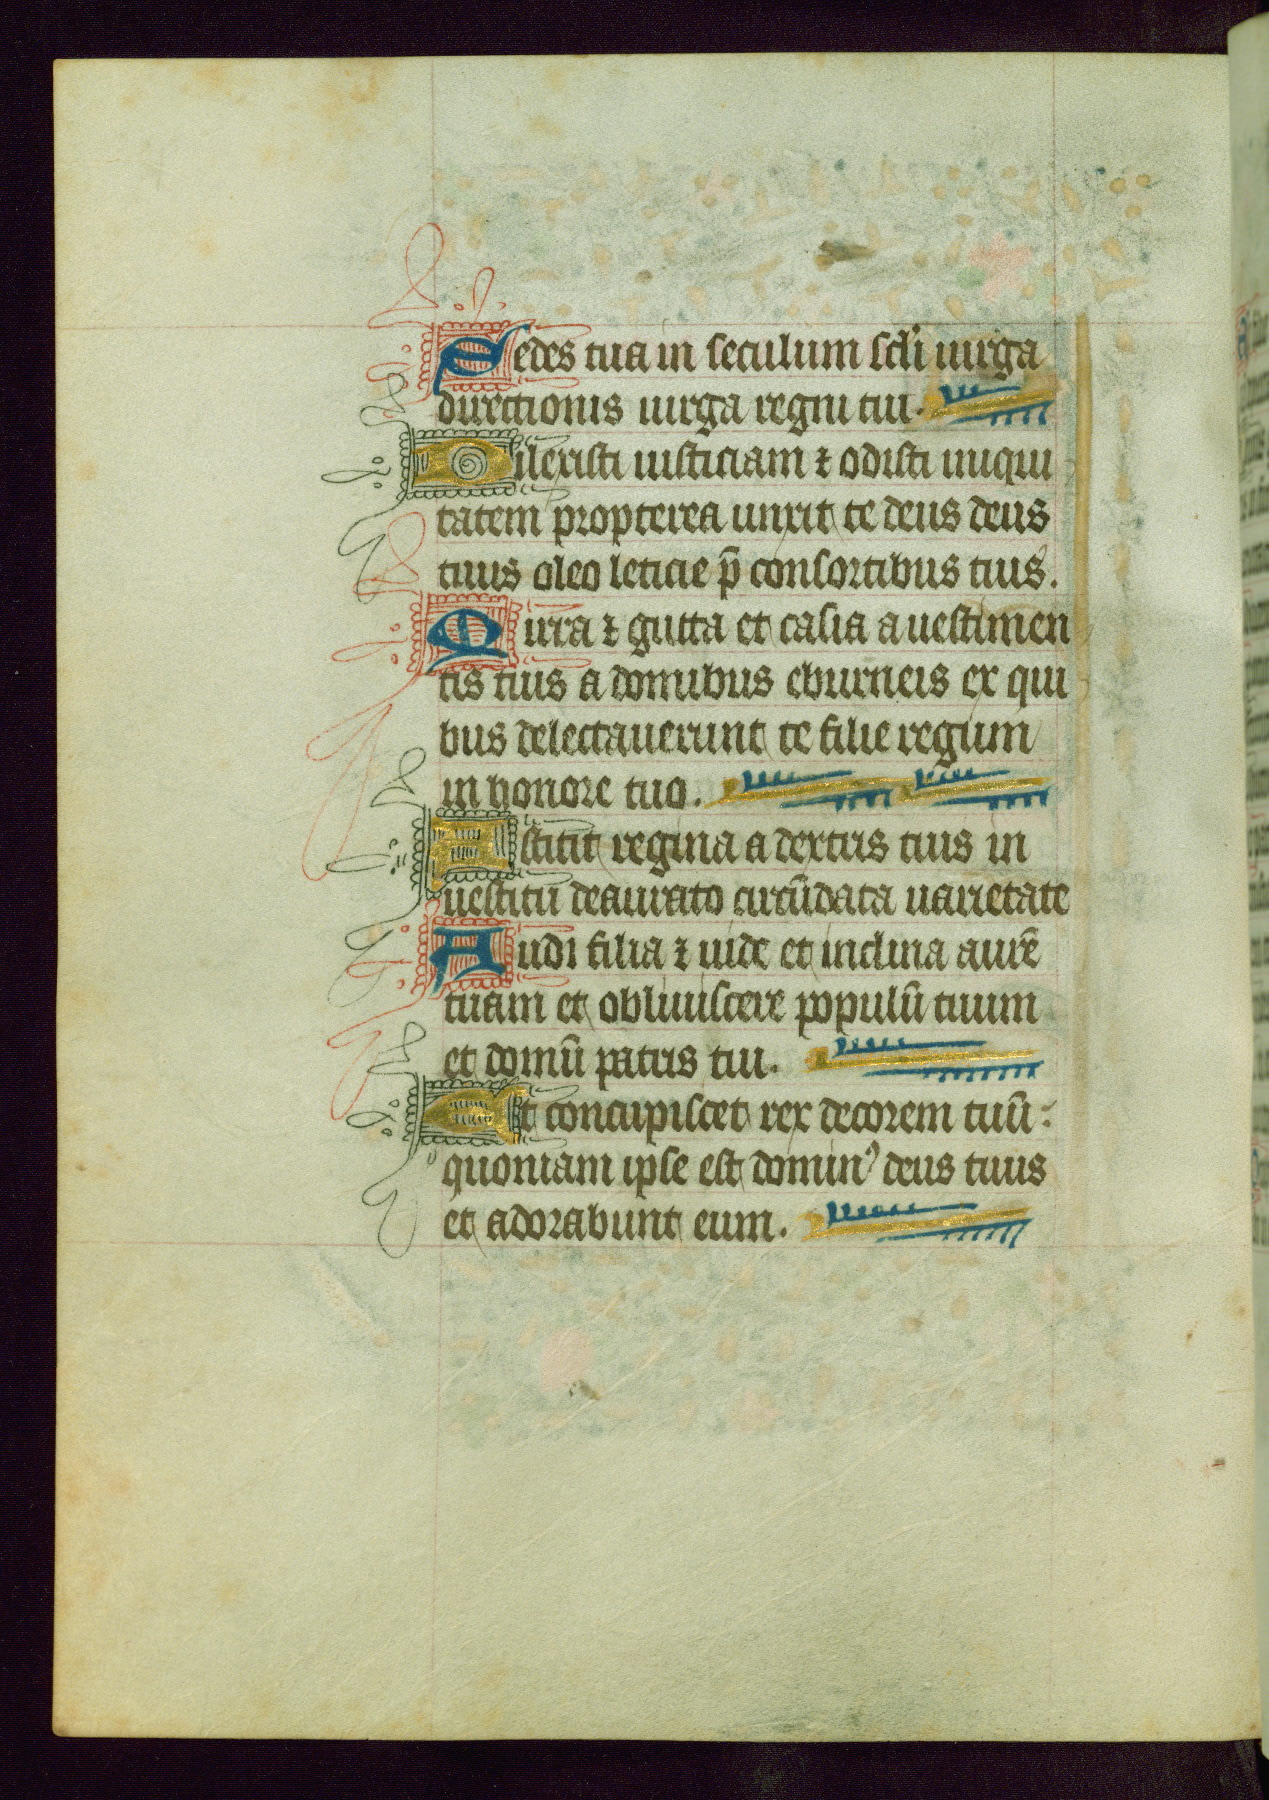 Sedes tua in seculum scli uirga
directionis uirga regni tui.
Dilexisti iusticiam ⁊ odisti iniqui
tatem propterea unxit te deus deus
tuus oleo leticie p̄ consortibus tuis.
Mirra ⁊ gutta et casia a uestimen
tis tuis a domibus eburneis ex qui
bus delectauerunt te filie regum
in honore tuo.
Astitit regina a dextris tuis in
uestitu deaurato circūdata uarietate
Audi filia ⁊ uide et inclina aurē
tuam et obliuiscere populū tuum
et domū patris tui.
Et concupiscet rex decorem tuū:
quoniam ipse est dominꝰ deus tuus
et adorabunt eum.